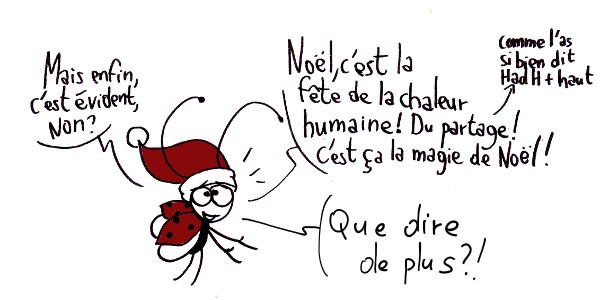 Mais enfin,
c'est évident,
Non?
Noël, c'est la
fête de la chaleur
humaine! Du partage!
C'est ça la magie de Noël!
Comme l'as
si bien dit
Had H + haut
Que dire
de plus?!